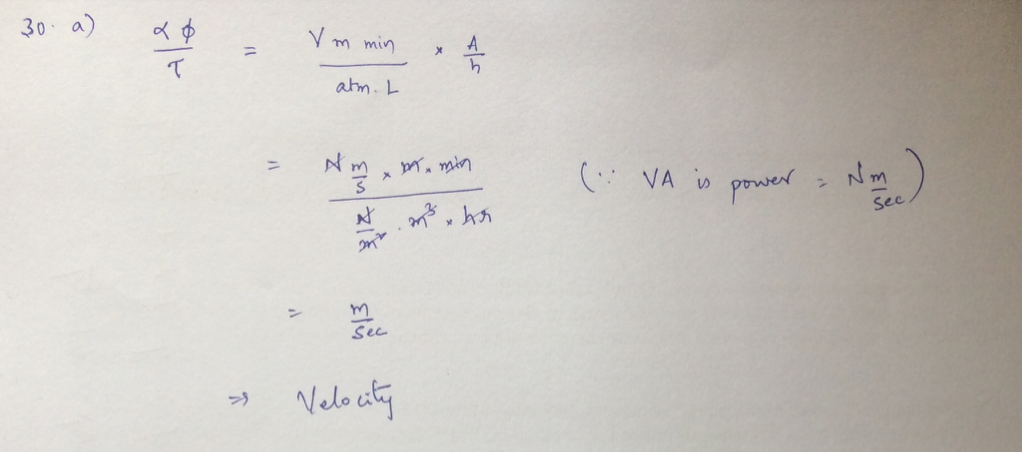 30. a) αφ/τ = V m min / atm. L × A/h
= N m/s × m × min / N/m² . m³ × hr (∵ VA is power = N m/sec)
= m/sec
⇒ Velocity